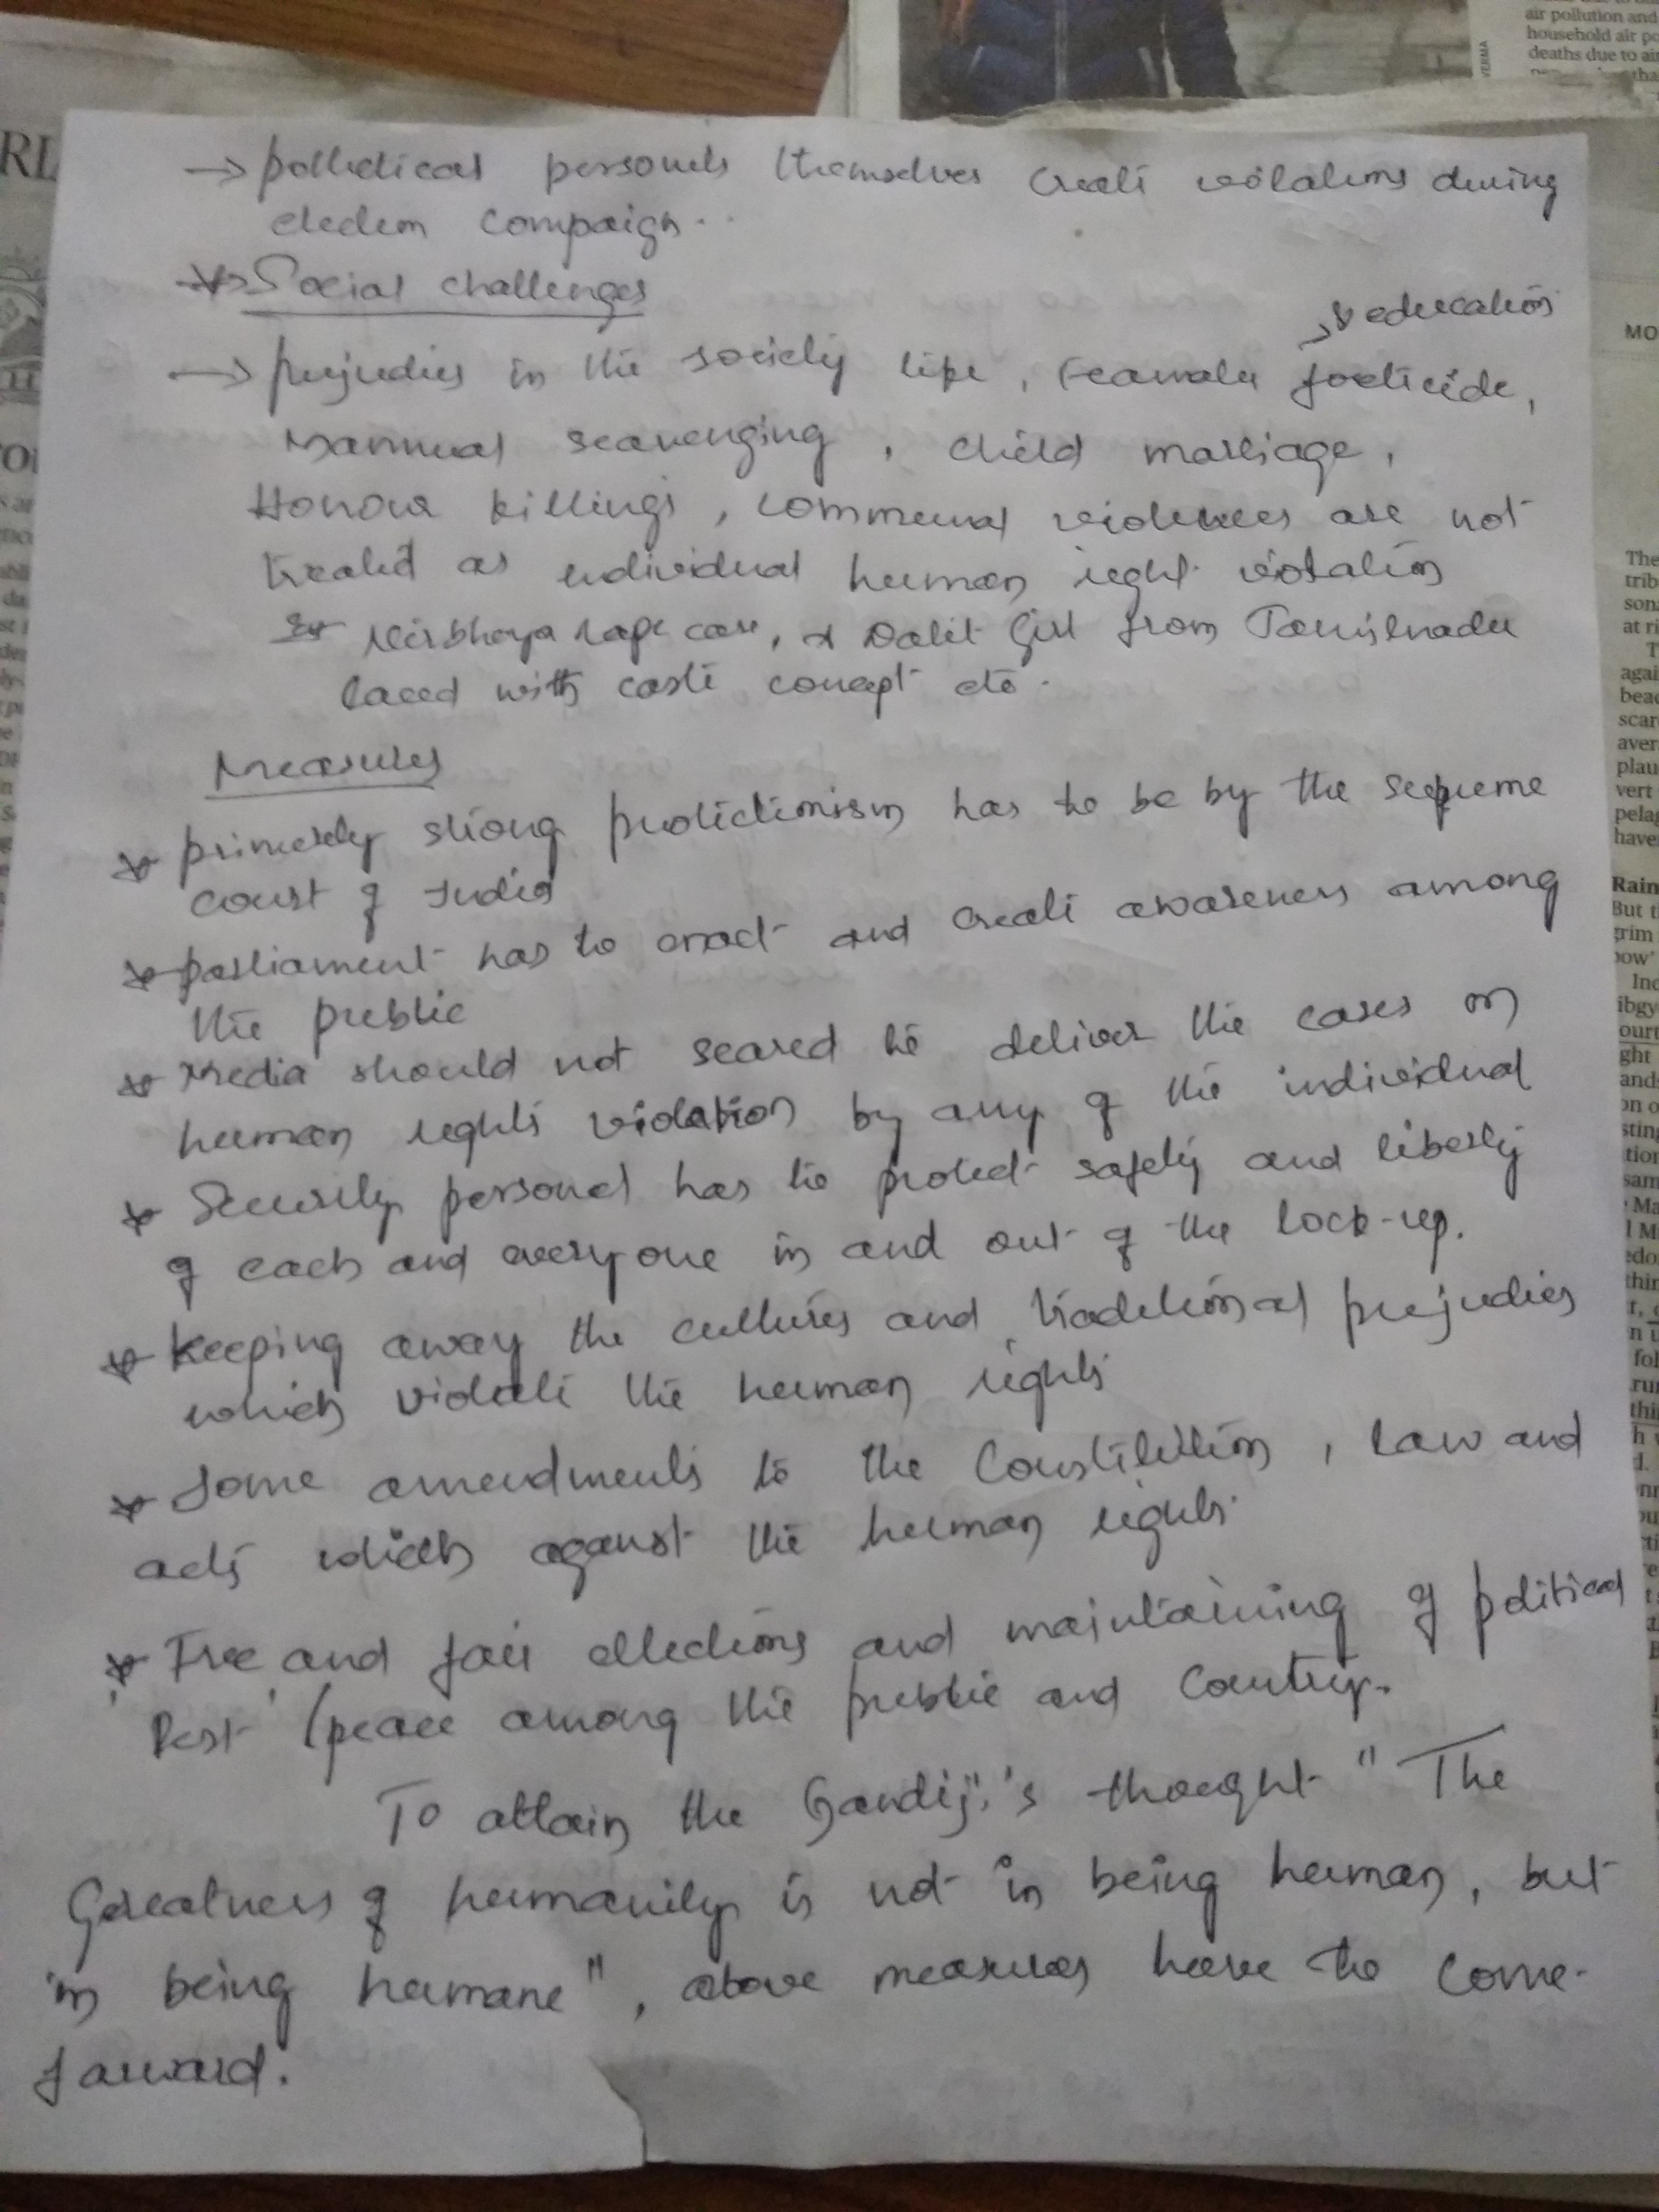 air pollution and
household air po
deaths due to air
VERMA
RL
→ pollictical personels themselves create voilations during
election compaign..
Social challenges
education
→ prejudies in the society like, Feamale foeticide,
Mannual scavenging, child marriage,
Honour killings, communal violences are not
treated as individual human right violation
Nirbhaya rape case, Dalit Girl from Tamilnadu
laced with caste concept etc.
Measures
* primerely strong protictionism has to be by the supreme
court of India
* parliament has to enact and create awareness among
the public
* Media should not scared to deliver the cases on
human rights violation by any of the individual
* Security personel has to protect safety and liberty
of each and everyone in and out of the lock-up.
* Keeping away the cultures and traditional prejudies
which violate the human rights
* Some amendments to the Constitution, law and
acts which against the human rights.
* Free and fair ellections and maintaining of political
'Rest' /peace among the public and Country.
To attain the Gandiji's thought "The
Greatness of humanity is not in being human, but
in being humane", above measures have to come-
forward.
MO
The
trib
sona
at ri
agai
beac
scar
aver
plau
vert
pelag
have
Rain
But t
grim
bow'